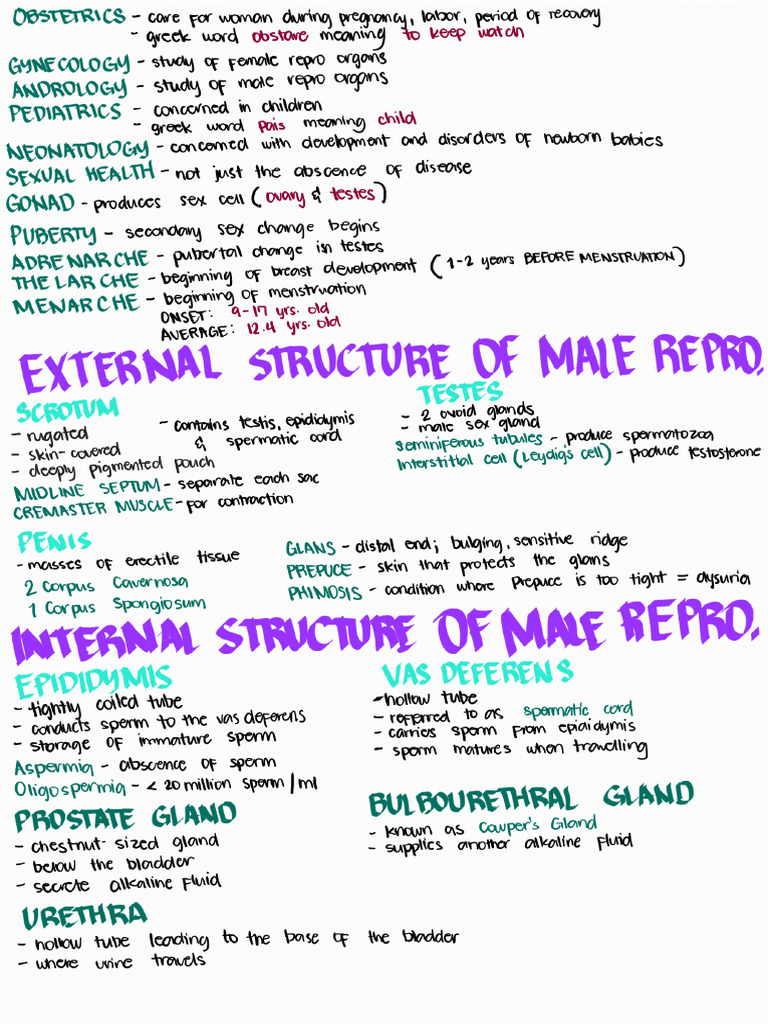 OBSTETRICS - care for woman during pregnancy, labor, period of recovery
- greek word obstare meaning to keep watch
GYNECOLOGY - study of female repro organs
ANDROLOGY - study of male repro organs
PEDIATRICS - concerned in children
- greek word Pais meaning child
NEONATOLOGY - concerned with development and disorders of newborn babies
SEXUAL HEALTH - not just the abscence of disease
GONAD - produces sex cell (ovary & testes)
PUBERTY - secondary sex change begins
ADRENARCHE - pubertal change in testes
THELARCHE - beginning of breast development (1-2 years BEFORE MENSTRUATION)
MENARCHE - beginning of menstruation
ONSET: 9-17 yrs. old
AVERAGE: 12.4 yrs. old
EXTERNAL STRUCTURE OF MALE REPRO.
SCROTUM
- rugated
- skin-covered
- deeply pigmented pouch
- contains testis, epididymis
& spermatic cord
MIDLINE SEPTUM - separate each sac
CREMASTER MUSCLE - for contraction
TESTES
- 2 ovoid glands
- male sex gland
Seminiferous tubules - produce spermatozoa
Interstitial cell (Leydig's cell) - produce testosterone
PENIS
- masses of erectile tissue
2 Corpus Cavernosa
1 Corpus Spongiosum
GLANS - distal end; bulging, sensitive ridge
PREPUCE - skin that protects the glans
PHIMOSIS - condition where Prepuce is too tight = dysuria
INTERNAL STRUCTURE OF MALE REPRO.
EPIDIDYMIS
- tightly coiled tube
- conducts sperm to the vas deferens
- storage of immature sperm
Aspermia - abscence of sperm
Oligospermia - < 20 million sperm/ml
VAS DEFERENS
- hollow tube
- referred to as spermatic cord
- carries sperm from epididymis
- sperm matures when travelling
PROSTATE GLAND
- chestnut-sized gland
- below the bladder
- secrete alkaline fluid
BULBOURETHRAL GLAND
- known as Cowper's Gland
- supplies another alkaline fluid
URETHRA
- hollow tube leading to the base of the bladder
- where urine travels